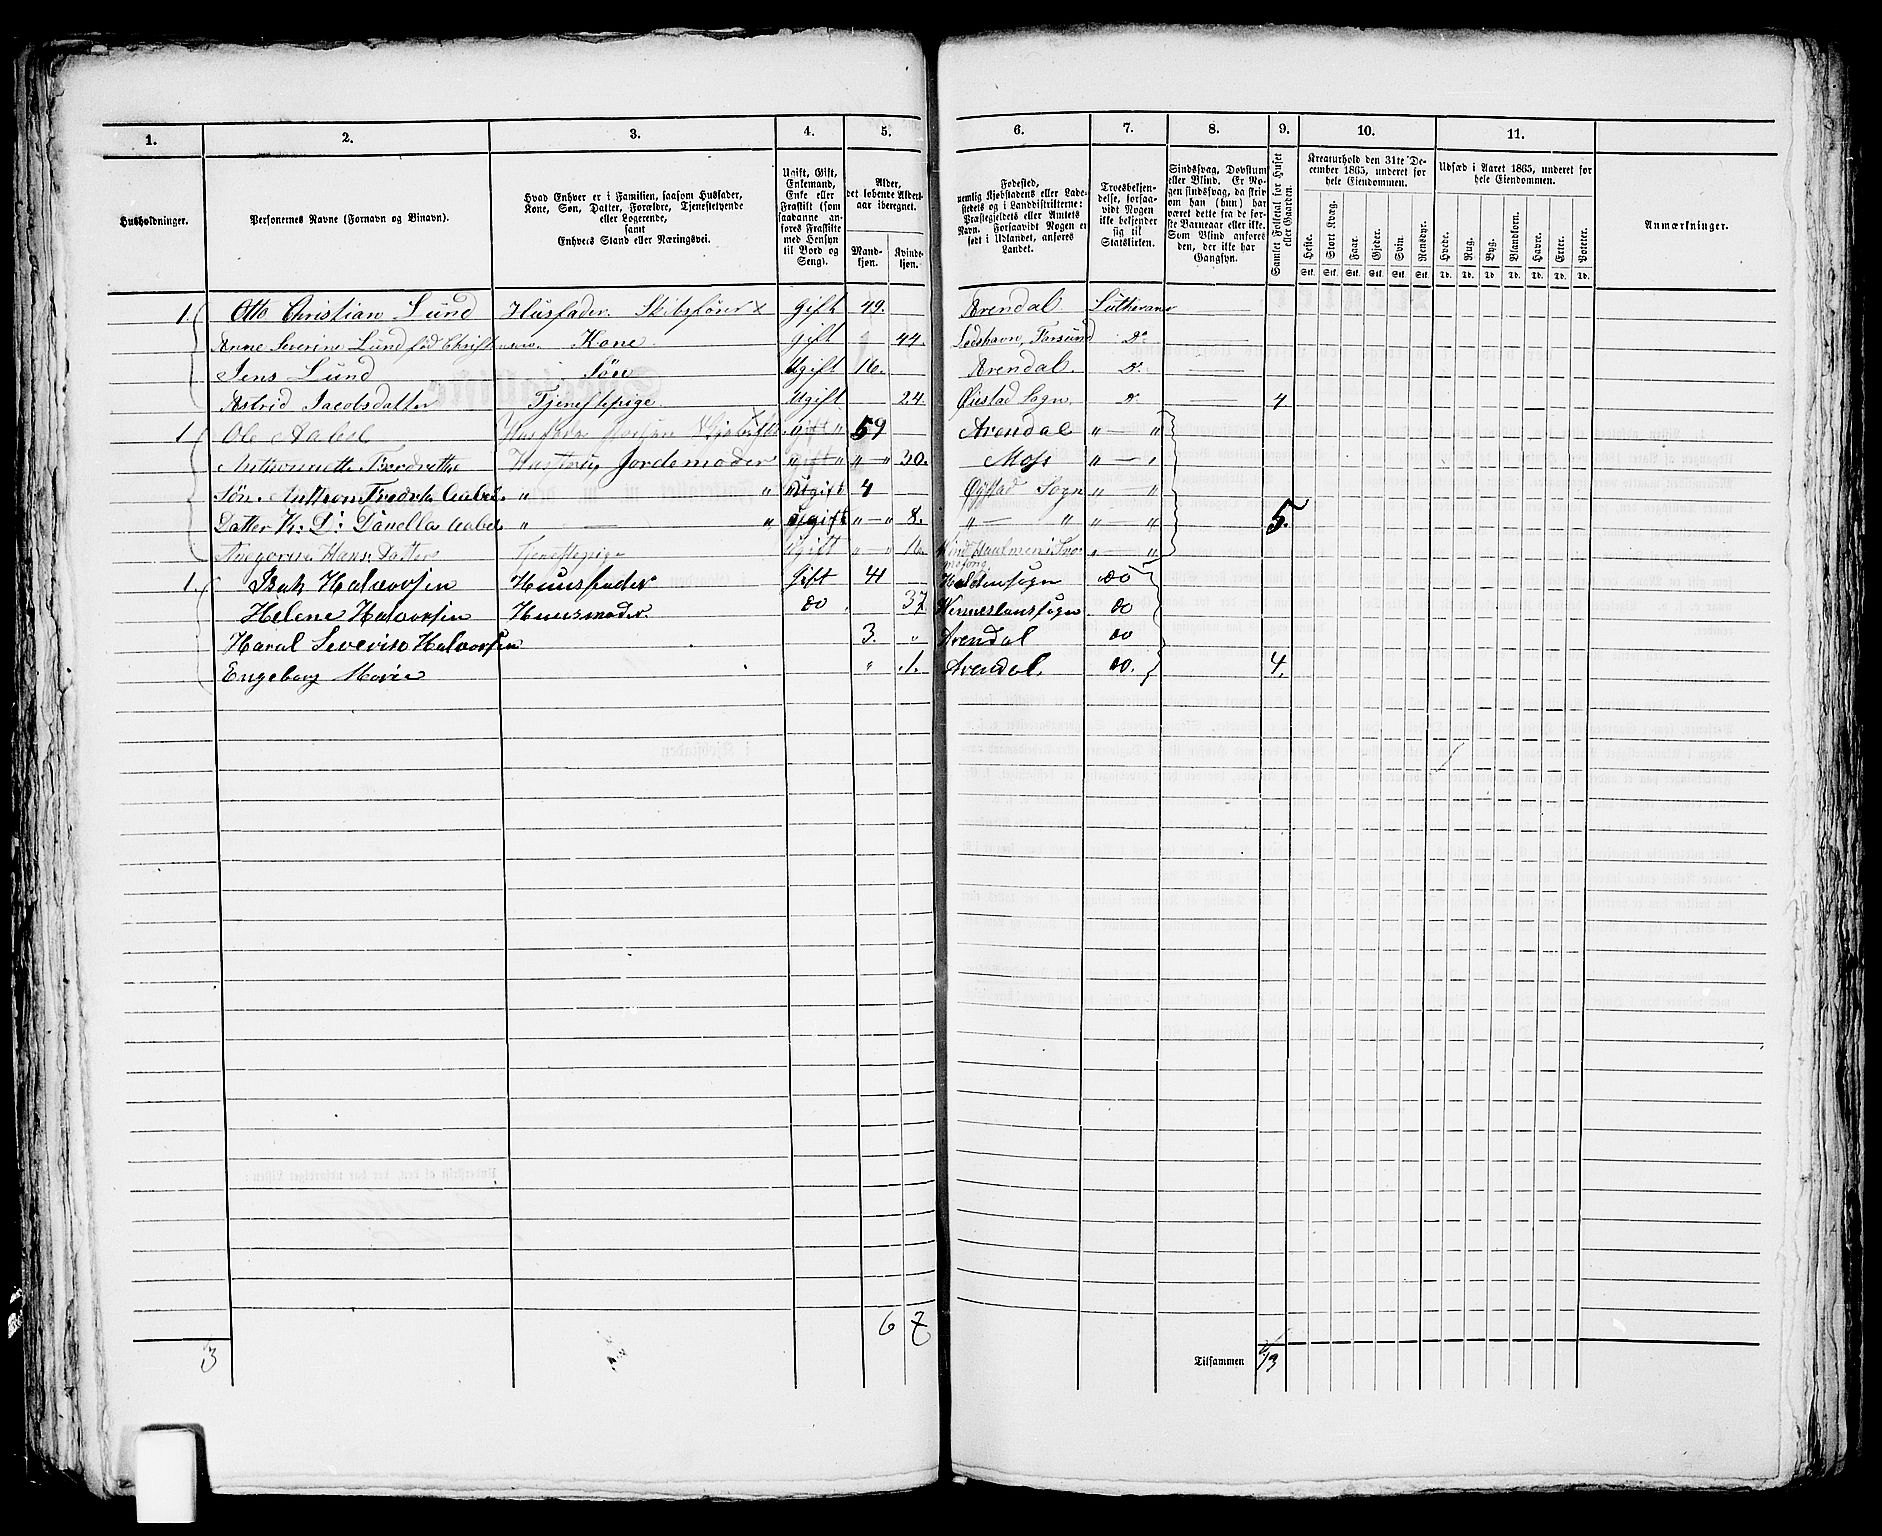 1. 2. 3. 4. 5. 6. 7. 8. 9. 10. 11.
Husholdninger.
Personernes Navne (Fornavn og Binavn).
Hvad Enhver er i Familien, saasom Husfader,
Kone, Søn, Datter, Forældre, Tjenestetyende
eller Logerende,
samt
Enhvers Stand eller Næringsvei.
Ugift, Gift,
Enkemand,
Enke eller
Fraskilt (som
saadanne an-
føres Fraskilte
med Hensyn
til Bord og
Seng).
Alder,
det løbende Alders-
aar iberegnet.
Mand-
kjøn.
Kvinde-
kjøn.
Fødested,
nemlig Kjøbstadens eller Lade-
stedets og i Landdistrikterne:
Præstegjeldets eller Amtets
Navn. Forsaavidt Nogen er
født i Udlandet, anføres
Landet.
Troesbekjen-
delse, forsaa-
vidt Nogen
ikke bekjender
sig til
Statskirken.
Sindssvag, Døvstum
eller Blind. Er No-
gen sindssvag, da skriv
om han (hun) har
været dette fra de før-
ste Barneaar eller ikke.
Som Blind anføres
den, der ikke har
Gangsyn.
Samlet Folketal for Huset
eller Gaarden.
Kreaturhold den 31te De-
cember 1865, underet for
hele Eiendommen.
Heste. Stort Kvæg. Faar. Gjeder. Svin. Rensdyr.
Stk. Stk. Stk. Stk. Stk. Stk.
Udsæd i Aaret 1865, underet for
hele Eiendommen.
Hvede. Rug. Byg. Blandkorn. Havre. Erter. Poteter.
Td. Td. Td. Td. Td. Td. Td.
Anmærkninger.
1. Otto Christian Lund Husfader. Skibsfører x gift 49. Arendal Lutheraner
Anne Severine Lund fød Christ Kone gift 44. Farsund Do
Jens Lund Søn Ugift 16. Arendal. Do
Astrid Jacobsdatter Tjenestepige Ugift 24 Øiestad Sogn Do 4
1 Ole Aabel 59 Arendal " — "
Anthonnette Hustrue Jordemoder " gift " " — " 30. Moss " — "
Søn. Anthom Fredrik Aabel " " Ugift 4 Øystad Sogn " — "
Datter K. D: Danella Aabel " — " Ugift " — " 8. " — " " " 5.
Hans Datter Tjenestepige Ugift " — " 16. " — "
1. Isak Halvorsen Huusfader Gift 41 Sogn do
Helene Halvorsen Huusmoder do 37 do
Haral Halvorsen 3. " Arendal do
Engeborg Marie " 1. Arendal. do. 4.
6 7
3 Tilsammen 13